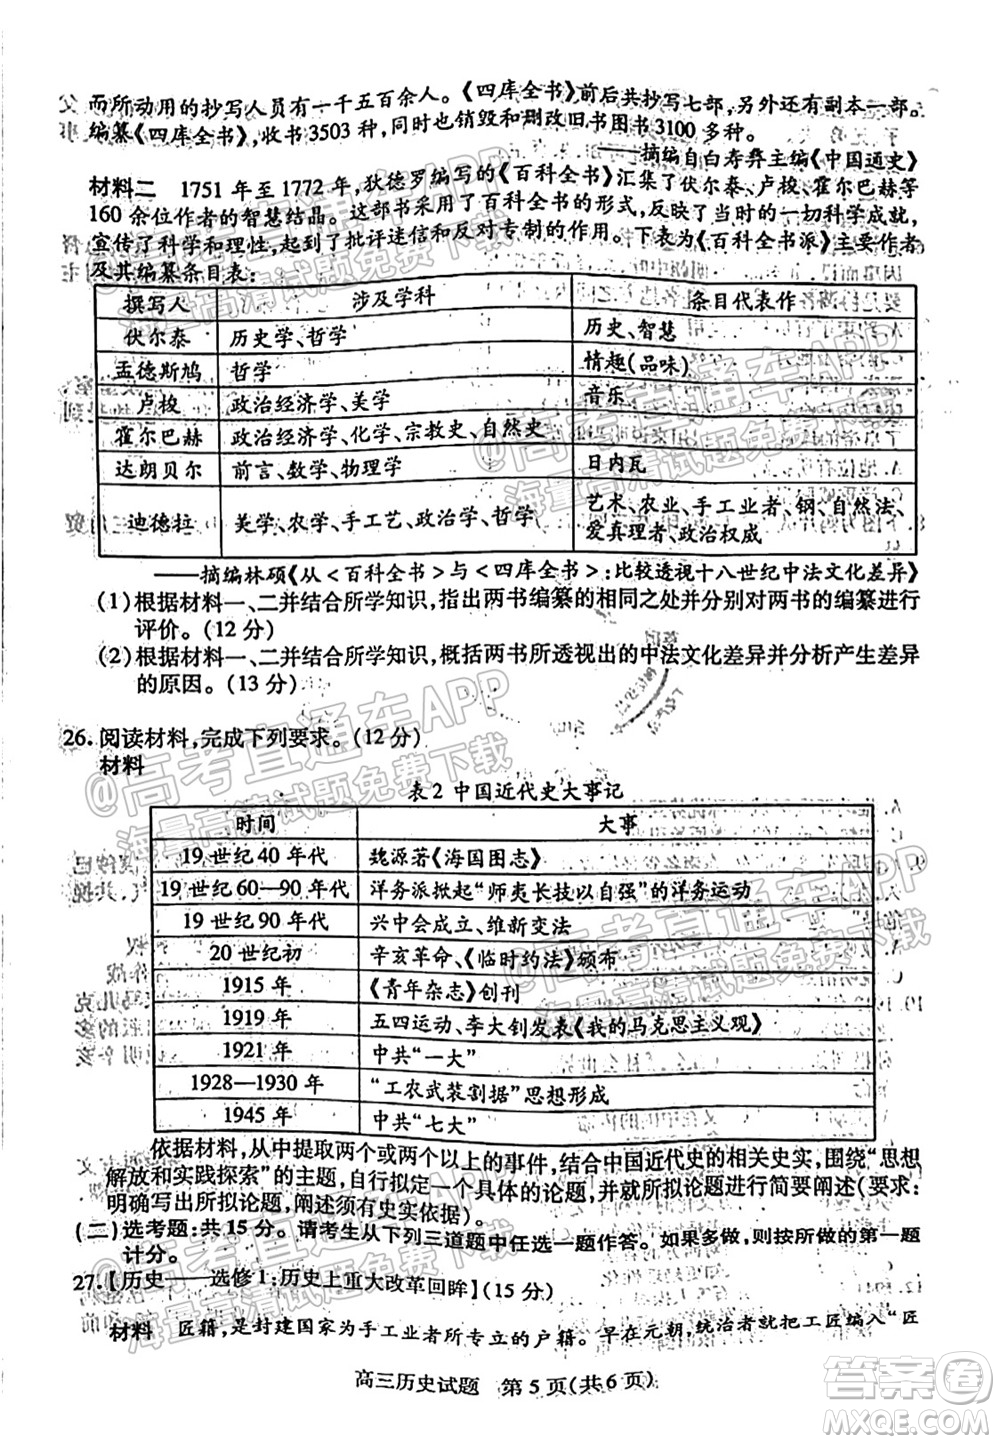 而所动用的抄写人员有一千五百余人。《四库全书》前后共抄写七部,另外还有副本一部。
编纂《四库全书》,收书3503种,同时也销毁和删改旧书图书3100多种。
——摘编自白寿彝主编《中国通史》
材料二 1751年至1772年,狄德罗编写的《百科全书》汇集了伏尔泰、卢梭、霍尔巴赫等
160余位作者的智慧结晶。这部书采用了百科全书的形式,反映了当时的一切科学成就,
宣传了科学和理性,起到了批评迷信和反对专制的作用。下表为《百科全书派》主要作者
及其编纂条目表:
撰写人 涉及学科 条目代表作
伏尔泰 历史学、哲学 历史、智慧
孟德斯鸠 哲学 情趣(品味)
卢梭 政治经济学、美学 音乐
霍尔巴赫 政治经济学、化学、宗教史、自然史
达朗贝尔 前言、数学、物理学 日内瓦
迪德拉 美学、农学、手工艺、政治学、哲学 艺术、农业、手工业者、钢、自然法、
爱真理者、政治权威
——摘编林硕《从<百科全书>与<四库全书>:比较透视十八世纪中法文化差异》
(1)根据材料一、二并结合所学知识,指出两书编纂的相同之处并分别对两书的编纂进行
评价。(12分)
(2)根据材料一、二并结合所学知识,概括两书所透视出的中法文化差异并分析产生差异
的原因。(13分)
26.阅读材料,完成下列要求。(12分)
材料
表2 中国近代史大事记
时间 大事
19世纪40年代 魏源著《海国图志》
19世纪60—90年代 洋务派掀起“师夷长技以自强”的洋务运动
19世纪90年代 兴中会成立、维新变法
20世纪初 辛亥革命、《临时约法》颁布
1915年 《青年杂志》创刊
1919年 五四运动、李大钊发表《我的马克思主义观》
1921年 中共“一大”
1928—1930年 “工农武装割据”思想形成
1945年 中共“七大”
依据材料,从中提取两个或两个以上的事件,结合中国近代史的相关史实,围绕“思想
解放和实践探索”的主题,自行拟定一个具体的论题,并就所拟论题进行简要阐述(要求:
明确写出所拟论题,阐述须有史实依据)。
(二)选考题:共15分。请考生从下列三道题中任选一题作答。如果多做,则按所做的第一题
计分。
27.【历史——选修1:历史上重大改革回眸】(15分)
材料 匠籍,是封建国家为手工业者所专立的户籍。早在元朝,统治者就把工匠编入“匠
高三历史试题 第5页(共6页)
@高考直通车APP
海量高清试题免费下载
@高考直通车APP
海量高清试题免费下载
@高考直通车APP
海量高清试题免费下载
@高考直通车APP
海量高清试题免费下载
答案圈
MXQE.COM